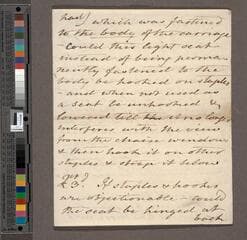 had) which was fastened
to the body of the carriage
- Could this light seat
instead of being perma-
nently fastened to the
body be hooked on staples
- and when not used as
a seat to unhooked &
lowered till it no longer
interferes with the view
from the chaise window
& then hook it on other
staples & strap it below
2 3. If staples & hooks
are objectionable - could
the seat be hinged at
back